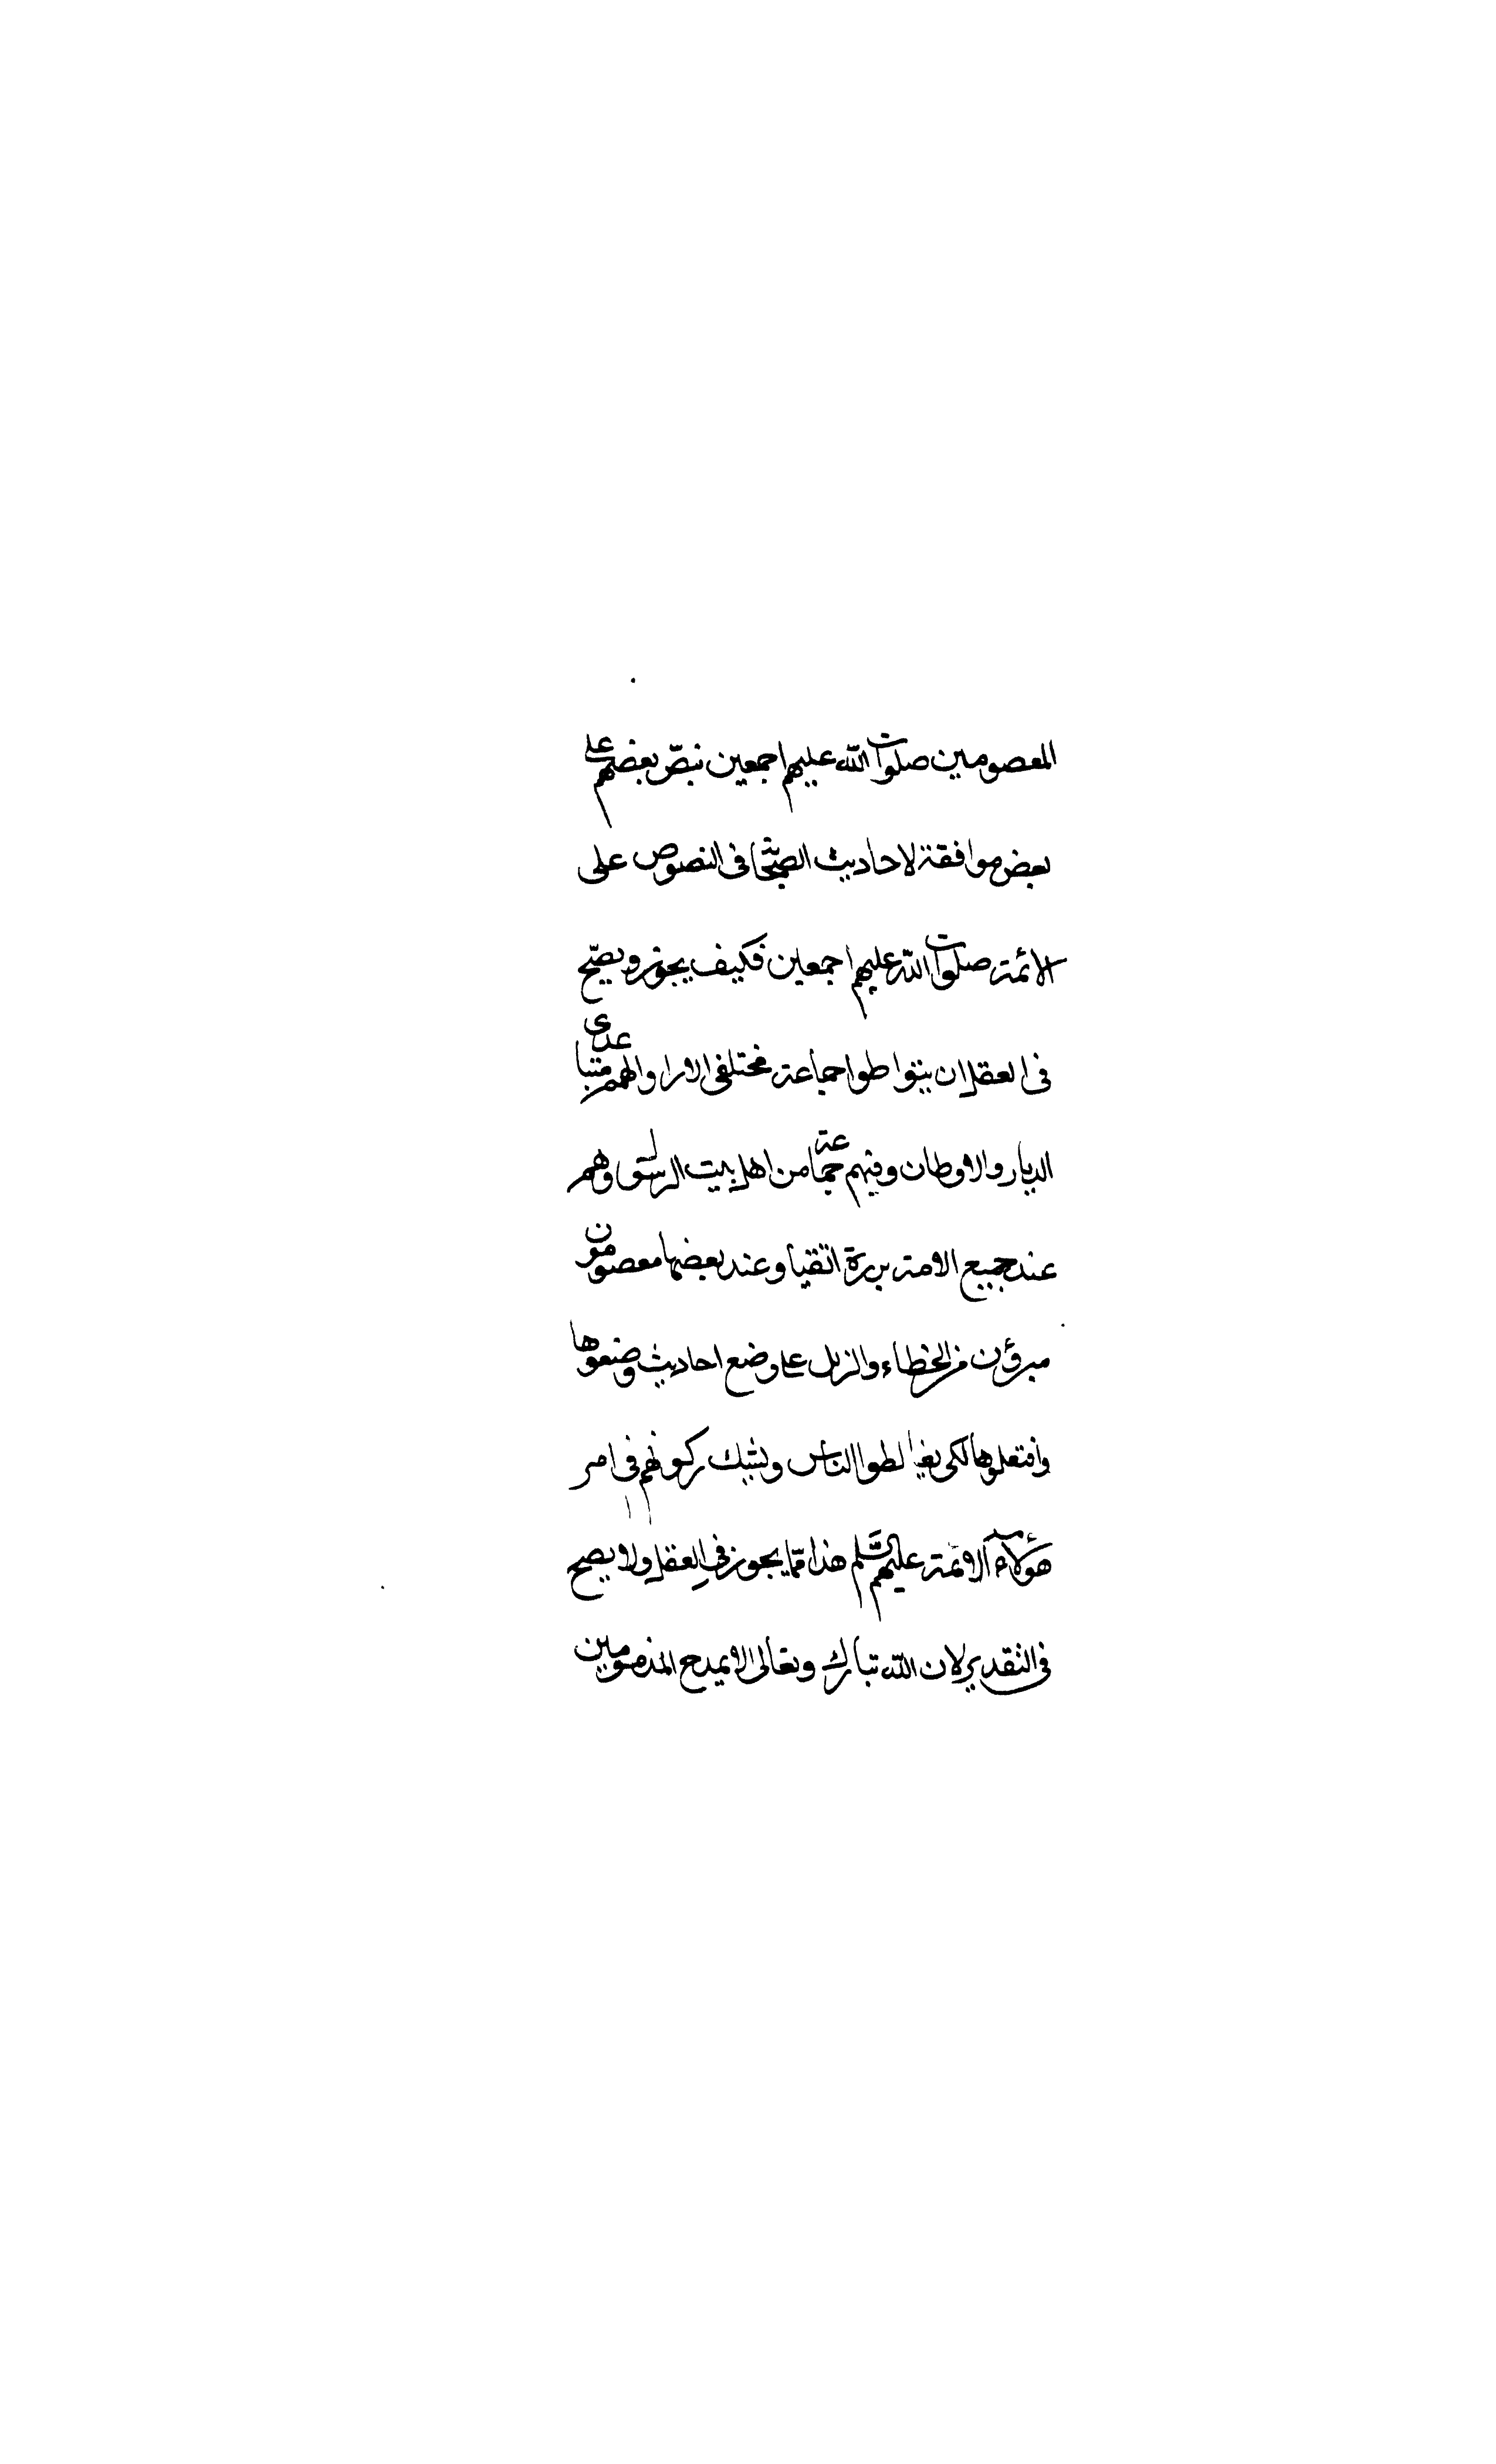 المعصومين صلوات الله عليهم اجمعين بنصّ بعضهم على
بعض موافقة لاحاديث الصحابة فى النصوص على
الائمة صلوات الله عليهم اجمعين فكيف يجوز ويصحّ
فى العقل ان يتواطوا جماعة مختلفى الارا والهمم متباعدى
الديار والاوطان وفيهم جماعة من اهل بيت الرسول وهم
عند جميع الامة بررة اتقيا وعند بعضها معصومون
مبرؤن من الخطاء والزلل على وضع احاديث وضعوها
وافتعلوها لكى يغالطوا الناس وبشبك ركونهم فى امر
هؤلاء الائمة عليهم السّلم هذا ممّا يجوز فى العقل ولا يصح
فى التقدير لان الله تبارك وتعالى لا يمدح المذمومين